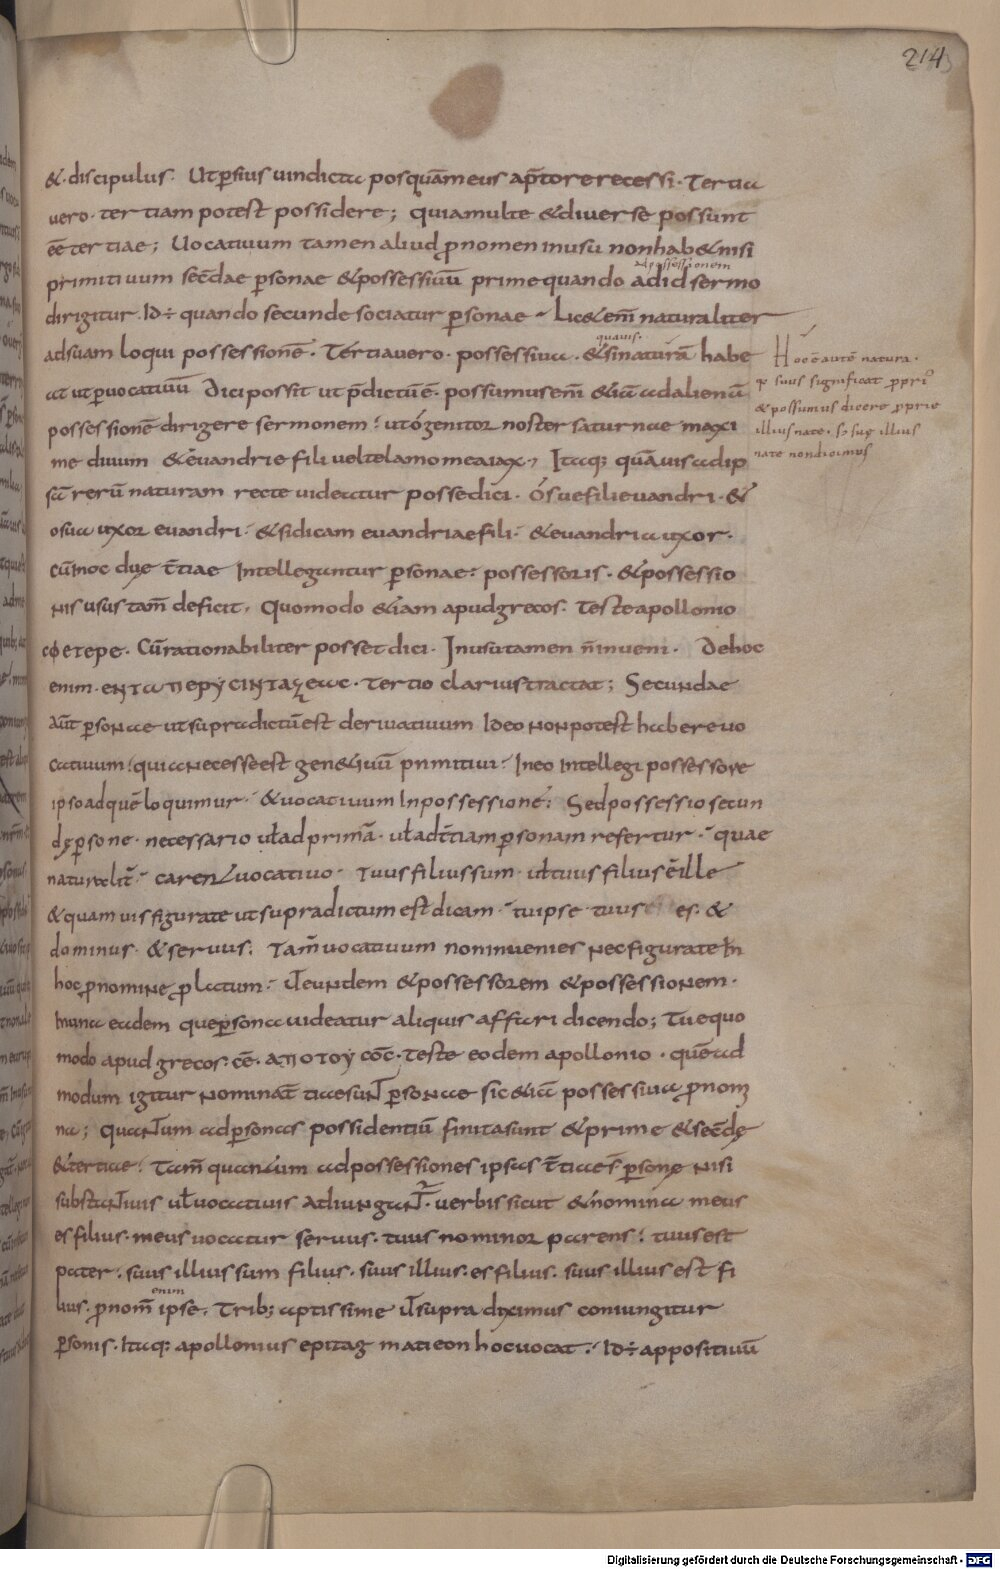 214
&. discipulus. Ut p̄sius uindicta posquā meus a p̄tore recessi. Tertia
uero. tertiam potest possidere; quia multe & diuerse possunt
eē tertiae; Uocatiuum tamen aliud p̄nomen in usu non hab& nisi
.i. possessionem
primitiuum secd̄ae p̄sonae & possessiuū prime quando ad id sermo
dirigitur. Id ÷ quando secunde sociatur p̄sonae. Lic& em̄ naturaliter
quauis.
ad suam loqui possessionē. Tertia uero. possessiua. & si naturā habe
at ut p̄ uocatiuū Dici possit ut p̄dictū ē. possumus em̄ &iā ad alienū
possessionē dirigere sermonem. ut ó genitor noster saturnae maxi
me diuum & euandrie fili uel telamomea iax, Itaq; quāuis ad ip
sā rerū naturam recte uideatur posse dici. ó sue fili euandri. &
o sua uxor euandri. & si dicam euandriae fili. & euandria uxor.
cū in hoc duę t̄tiae Intelleguntur p̄sonae. possessoris. & possessio
nis usus tam̄ deficit, Quomodo &iam apud grecos. Teste apollonio
cφετερε. Cū rationabiliter posset dici. In usu tamen n̄ inueni. De hoc
enim. εντωπερυ cινταξεωc. tertio clarius tractat; Secundae
aut̄ p̄sonae ut supra dictū est deriuatiuum Ideo non potest habere uo
catiuum. quia necesse est gen&iuū primitiui. In eo intellegi possessore
ipso ad quē loquimur. & uocatiuum In possessione. Sed possessio secun
dę p̄sone. necessario uł ad primā. uł ad t̄tiam p̄sonam refertur. quae
naturalit̄. carent uocatiuo. Tuus filius sum. uł tuus filius ē ille
& quamuis figurate ut supra dictum est dicam. tu ipse tuus es. &
dominus. & seruus. Tam̄ uocatiuum non inuenies nec figurate in
hoc p̄nomine p̄latum. uł eundem & possessorem & possessionem.
In una eadem que p̄sona uideatur aliquis affari dicendo; Tu equo
modo apud grecos. cē. απο τοy cōc. Teste eodem apollonio. quē ad
modum igitur nominat̄ tiae sunt p̄sonae sic &iā possessiua p̄nom
na; quantum ad p̄sonas possidentiū finita sunt & prime & secd̄ę
& tertiae. Tam̄ quantum ad possessiones ipsas t̄tiae s̄ p̄sonę nisi
substantiuis uł uocatiuis adiungant̄. uerbis sicut & nomina meus
es filius. meus uocatur seruus. tuus nominor parens. tuus est
pater. suus illius sum filius. suus illius. es filius. suus illius est fi
enim
lius. p̄nom̄ ipse. Trib; aptissime ut supra diximus coniungitur
p̄sonis. Itaq; apollonius epitag maticon hoc uocat. Id ÷ appositiuū
Hoc ē autē natura.
suus significat p̄pri
& possumus dicere p̄prie
illius nate. sꝫ suę illius
nate non dicimus
Digitalisierung gefördert durch die Deutsche Forschungsgemeinschaft - DFG